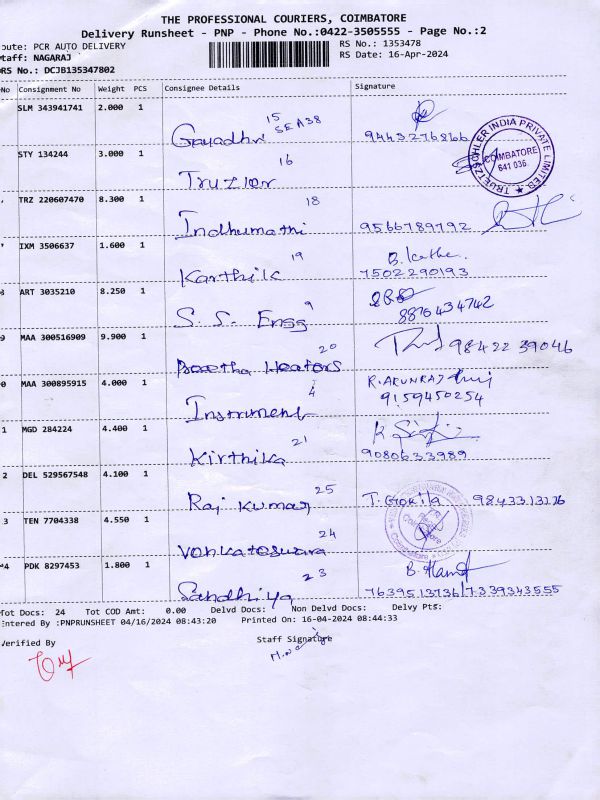 THE PROFESSIONAL COURIERS, COIMBATORE
Delivery Runsheet - PNP - Phone No.:0422-3505555 - Page No.:2
oute: PCR AUTO DELIVERY
RS No.: 1353478
taff: NAGARAJ
RS Date: 16-Apr-2024
RS No.: DCJB135347802
No Consignment No Weight PCS Consignee Details Signature
SLM 343941741 2.000 1
15 SEA38
Gayadhri 9443276866
STY 134244 3.000 1
16
TRUETZSCHLER INDIA PRIVATE LIMITED
COIMBATORE
641 036.
Truzler
TRZ 220607470 8.300 1
18
Indhumathi 9566789792
IXM 3506637 1.600 1
19
Karthik 7502290193
ART 3035210 8.250 1
9
S. S. Engg 8876434742
9 MAA 300516909 9.900 1
20
Heaters 98422 39046
0 MAA 300895915 4.000 1
4
R.ARUNRAJ
Instrument 9159450254
1 MGD 284224 4.400 1
21
Kirthika 9080633989
2 DEL 529567548 4.100 1
25
Raj Kumar T. Gokila 98433 13126
3 TEN 7704338 4.550 1
24
Coimbatore
Venkateswara
4 PDK 8297453 1.800 1
23
Sandhiya 7639513736/7339343555
Tot Docs: 24 Tot COD Amt: 0.00 Delvd Docs: Non Delvd Docs: Delvy Pts:
Entered By :PNPRUNSHEET 04/16/2024 08:43:20 Printed On: 16-04-2024 08:44:33
Verified By Staff Signature